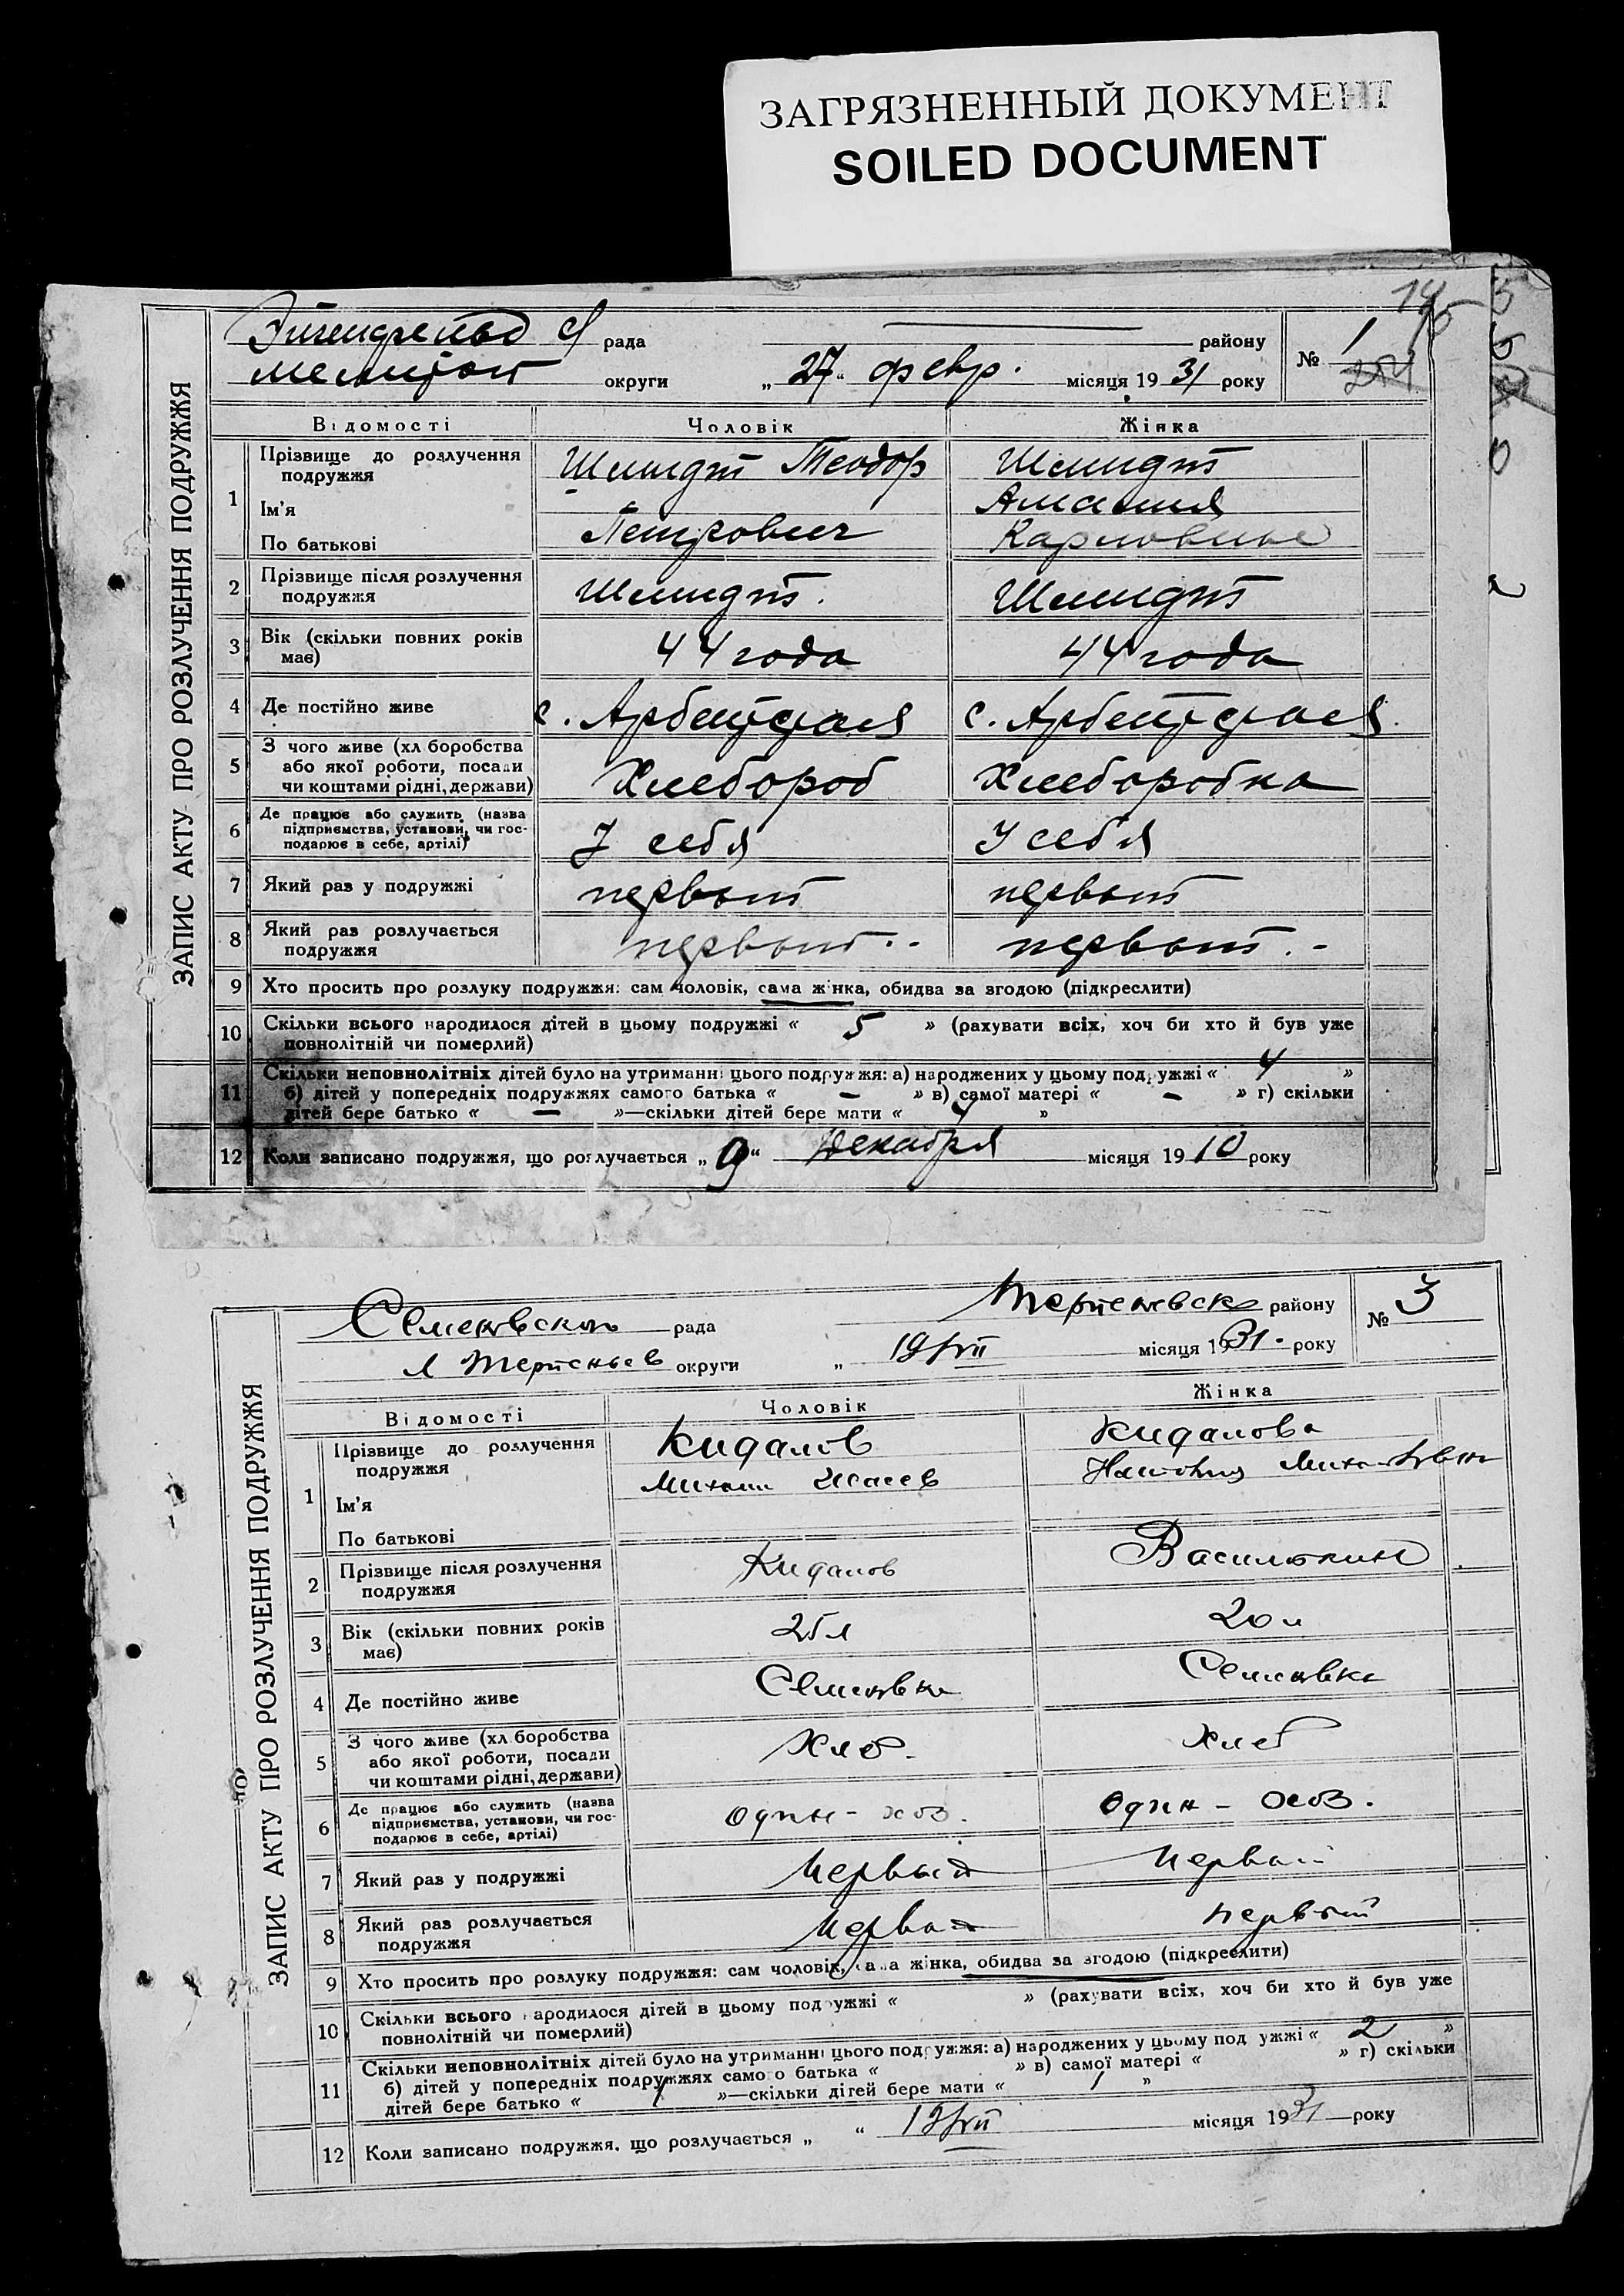 ЗАГРЯЗНЕННЫЙ ДОКУМЕНТ
SOILED DOCUMENT
ЗАПИС АКТУ ПРО РОЗЛУЧЕННЯ ПОДРУЖЖЯ
рада району № 1
округи „ 27 “ февр. місяця 19 31 року
Відомості Чоловік Жінка
1 Прізвище до розлучення подружжя Шмидт Теодор Шмидт
Ім'я Амалия
По батькові Петрович Карловна
2 Прізвище після розлучення подружжя Шмидт. Шмидт
3 Вік (скільки повних років має) 44 года 44 года
4 Де постійно живе с. Арбейтсталь с. Арбейтсталь
5 З чого живе (хл.боробства або якої роботи, посади чи коштами рідні, держави) Хлебороб Хлеборобка
6 Де працює або служить (назва підприємства, установи, чи господарює в себе, артілі) У себя У себя
7 Який раз у подружжі первый первый
8 Який раз розлучається подружжя первый.- первый.-
9 Хто просить про розлуку подружжя: сам чоловік, сама жінка, обидва за згодою (підкреслити)
10 Скільки всього народилося дітей в цьому подружжі « 5 » (рахувати всіх, хоч би хто й був уже
повнолітній чи померлий)
11 Скільки неповнолітніх дітей було на утриманні цього подружжя: а) народжених у цьому подружжі « 4 »
б) дітей у попередніх подружжях самого батька « — » в) самої матері « — » г) скільки
дітей бере батько « — »—скільки дітей бере мати « 4 »
12 Коли записано подружжя, що розлучається „ 9 “ Декабря місяця 19 10 року
ЗАПИС АКТУ ПРО РОЗЛУЧЕННЯ ПОДРУЖЖЯ
Семеновской рада району № 3
округи „ місяця 19 31 року
Відомості Чоловік Жінка
1 Прізвище до розлучення подружжя Кидалов Кидалова
Ім'я
По батькові
2 Прізвище після розлучення подружжя Кидалов
3 Вік (скільки повних років має) 25 л 20 л
4 Де постійно живе Семеновка Семеновка
5 З чого живе (хл.боробства або якої роботи, посади чи коштами рідні, держави) Хлеб. Хлеб
6 Де працює або служить (назва підприємства, установи, чи господарює в себе, артілі) Один-осов. Один-осов.
7 Який раз у подружжі Первый Первый
8 Який раз розлучається подружжя Первый первый
9 Хто просить про розлуку подружжя: сам чоловік, сама жінка, обидва за згодою (підкреслити)
10 Скільки всього народилося дітей в цьому подружжі « » (рахувати всіх, хоч би хто й був уже
повнолітній чи померлий)
11 Скільки неповнолітніх дітей було на утриманні цього подружжя: а) народжених у цьому подружжі « 2 »
б) дітей у попередніх подружжях самого батька « » в) самої матері « » г) скільки
дітей бере батько « 1 »—скільки дітей бере мати « 1 »
12 Коли записано подружжя, що розлучається „ “ місяця 19 31 року